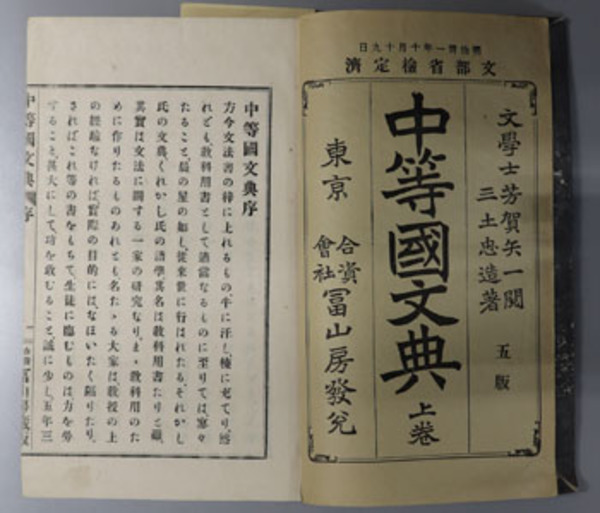 明治卅一年十月十九日
文部省檢定濟
文學士芳賀矢一閲
三土忠造著
五版
中等國文典 上卷
東京
合資
會社
冨山房發兌
中等國文典序
方今文法書の梓に上れるもの牛に汗し、棟に充てり、然
れども、教科用書として適當なるものに至りては、寥々
たること、晨の星の如し、從來世に行はれたる、それがし
氏の文典、くれがし氏の語學、其名は教科用書たりと雖、
其實は文法に關する一家の研究なり、ま、教科用のた
めに作りたるものあれども、名たゝる大家は、教授の上
の經驗なければ、實際の目的には、なほいたく隔りたり、
されば、これ等の書をもちて、生徒に臨むものは、力を勞
すること、甚大にして、功を收むること、誠に少し、五年三
中等國文典 序
一
冨山房藏版